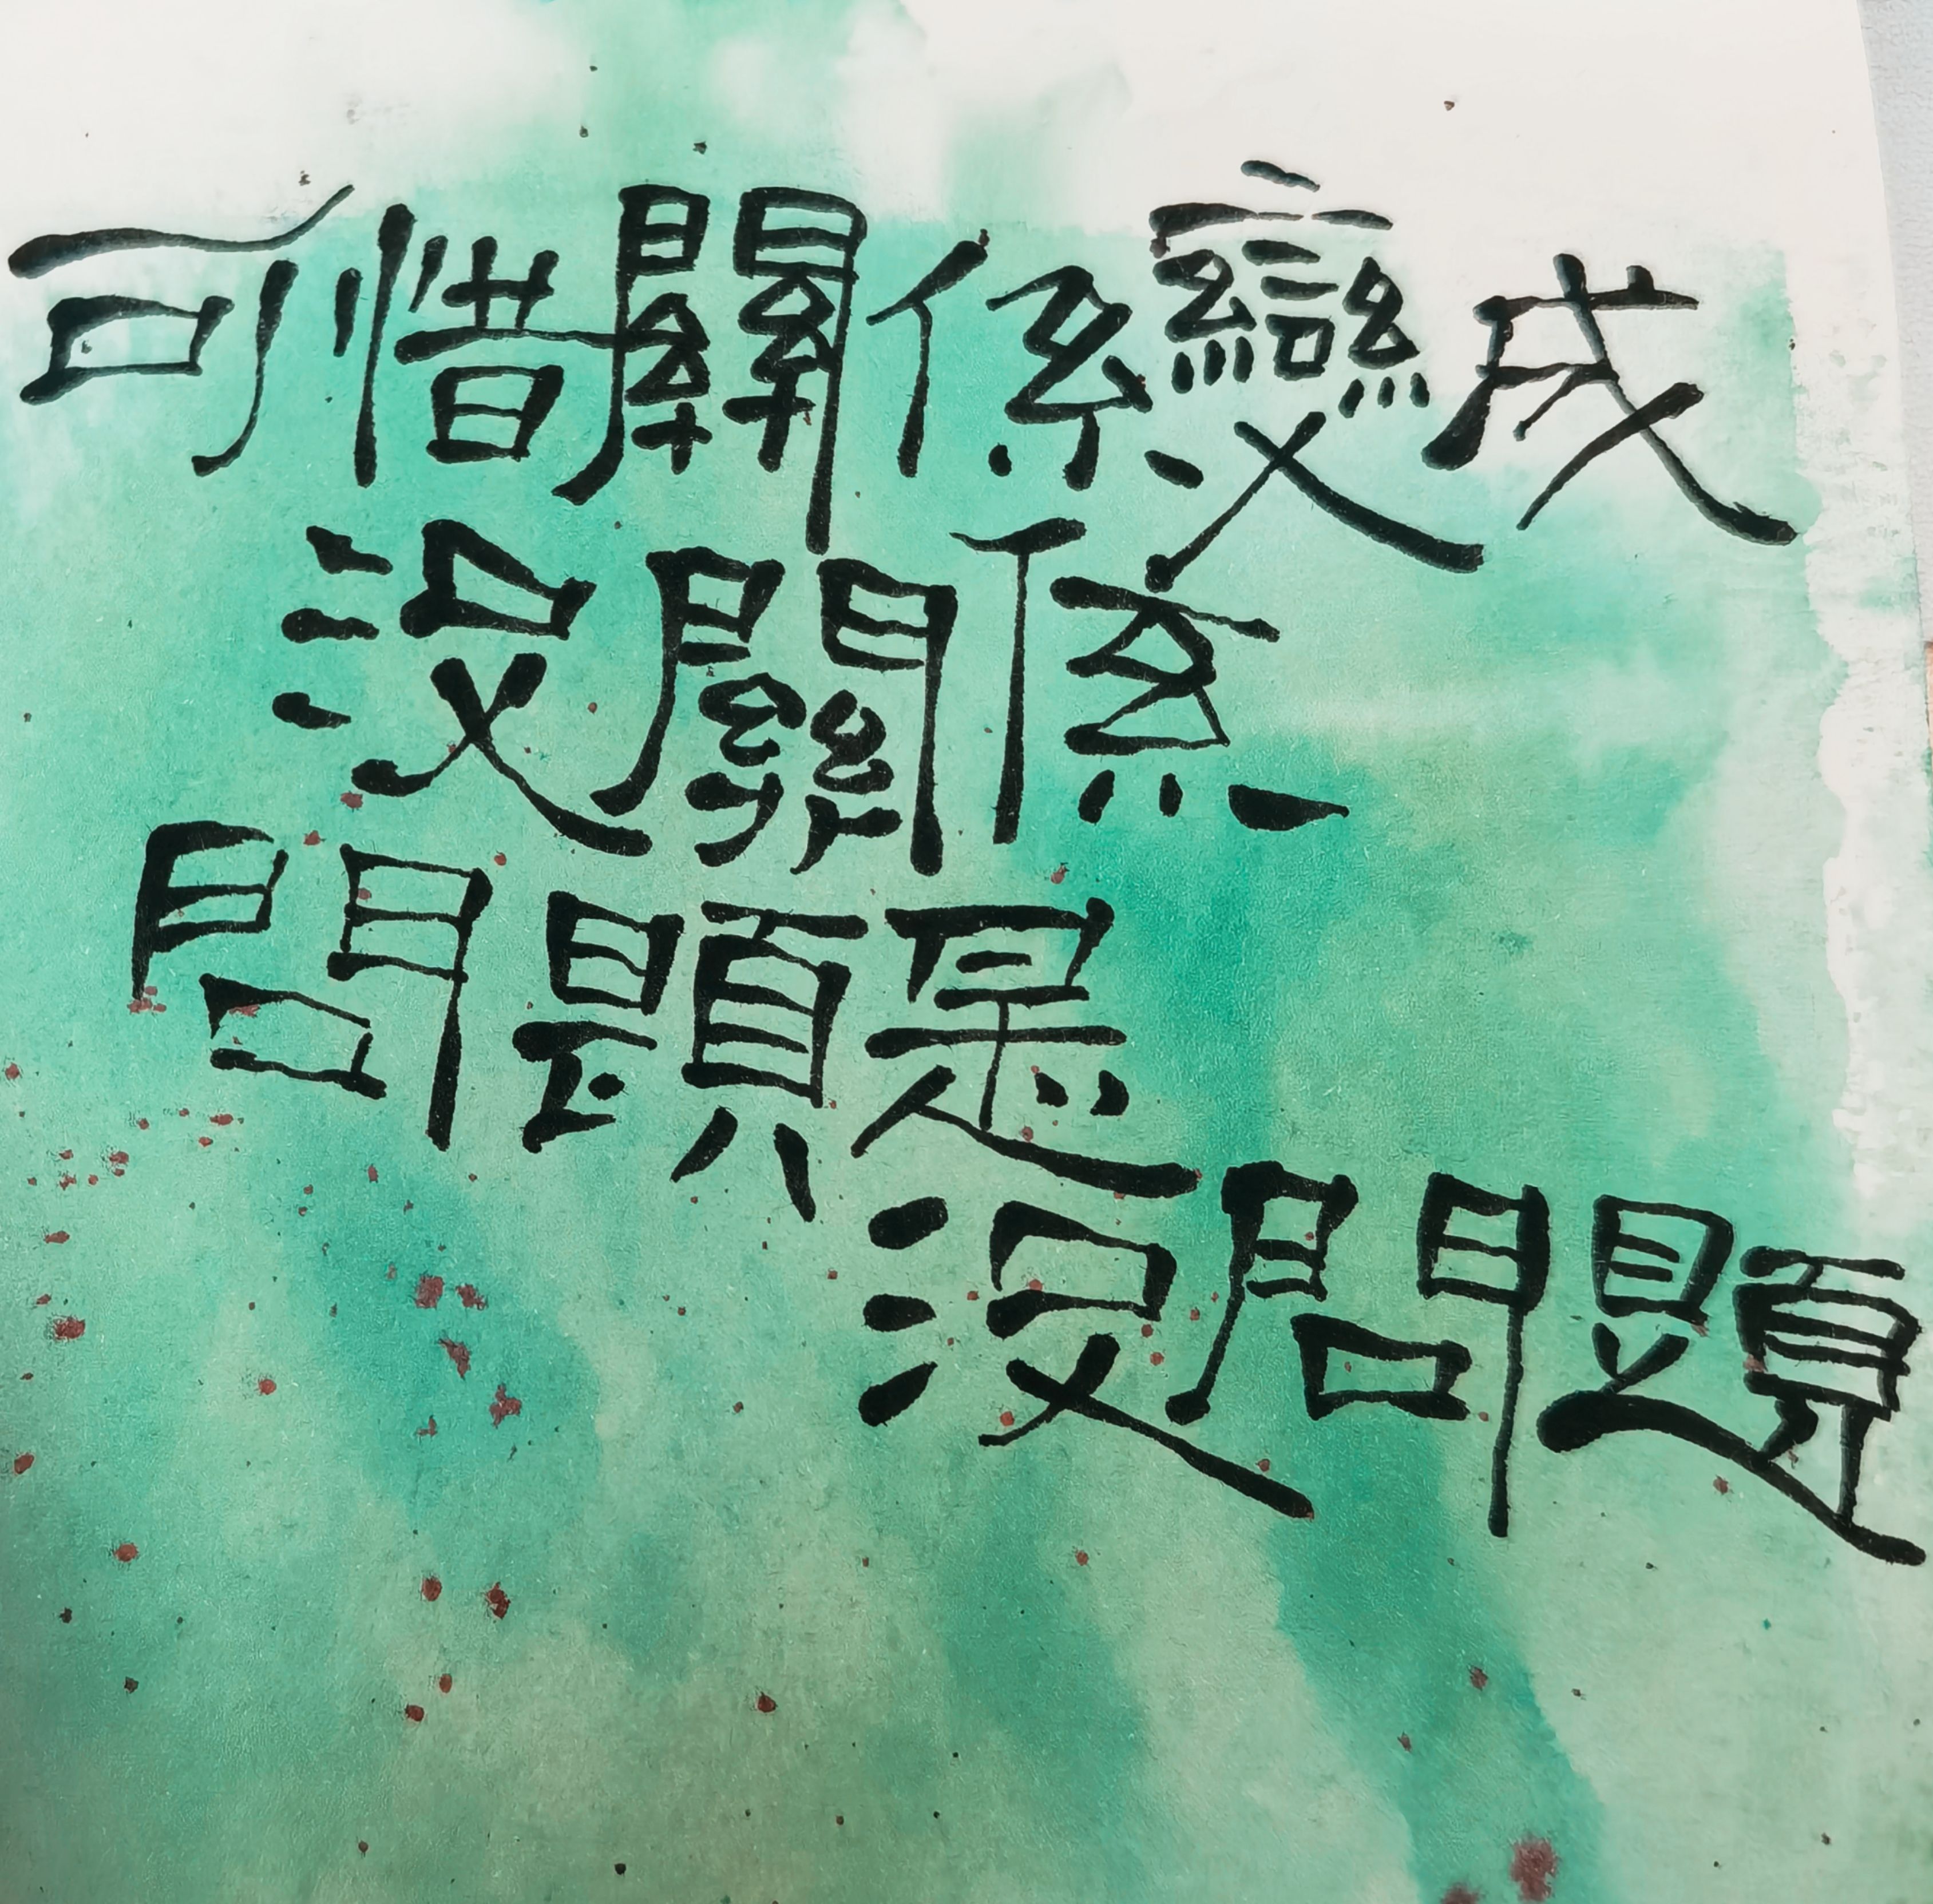 可惜關係變成
沒關係
問題是
沒問題